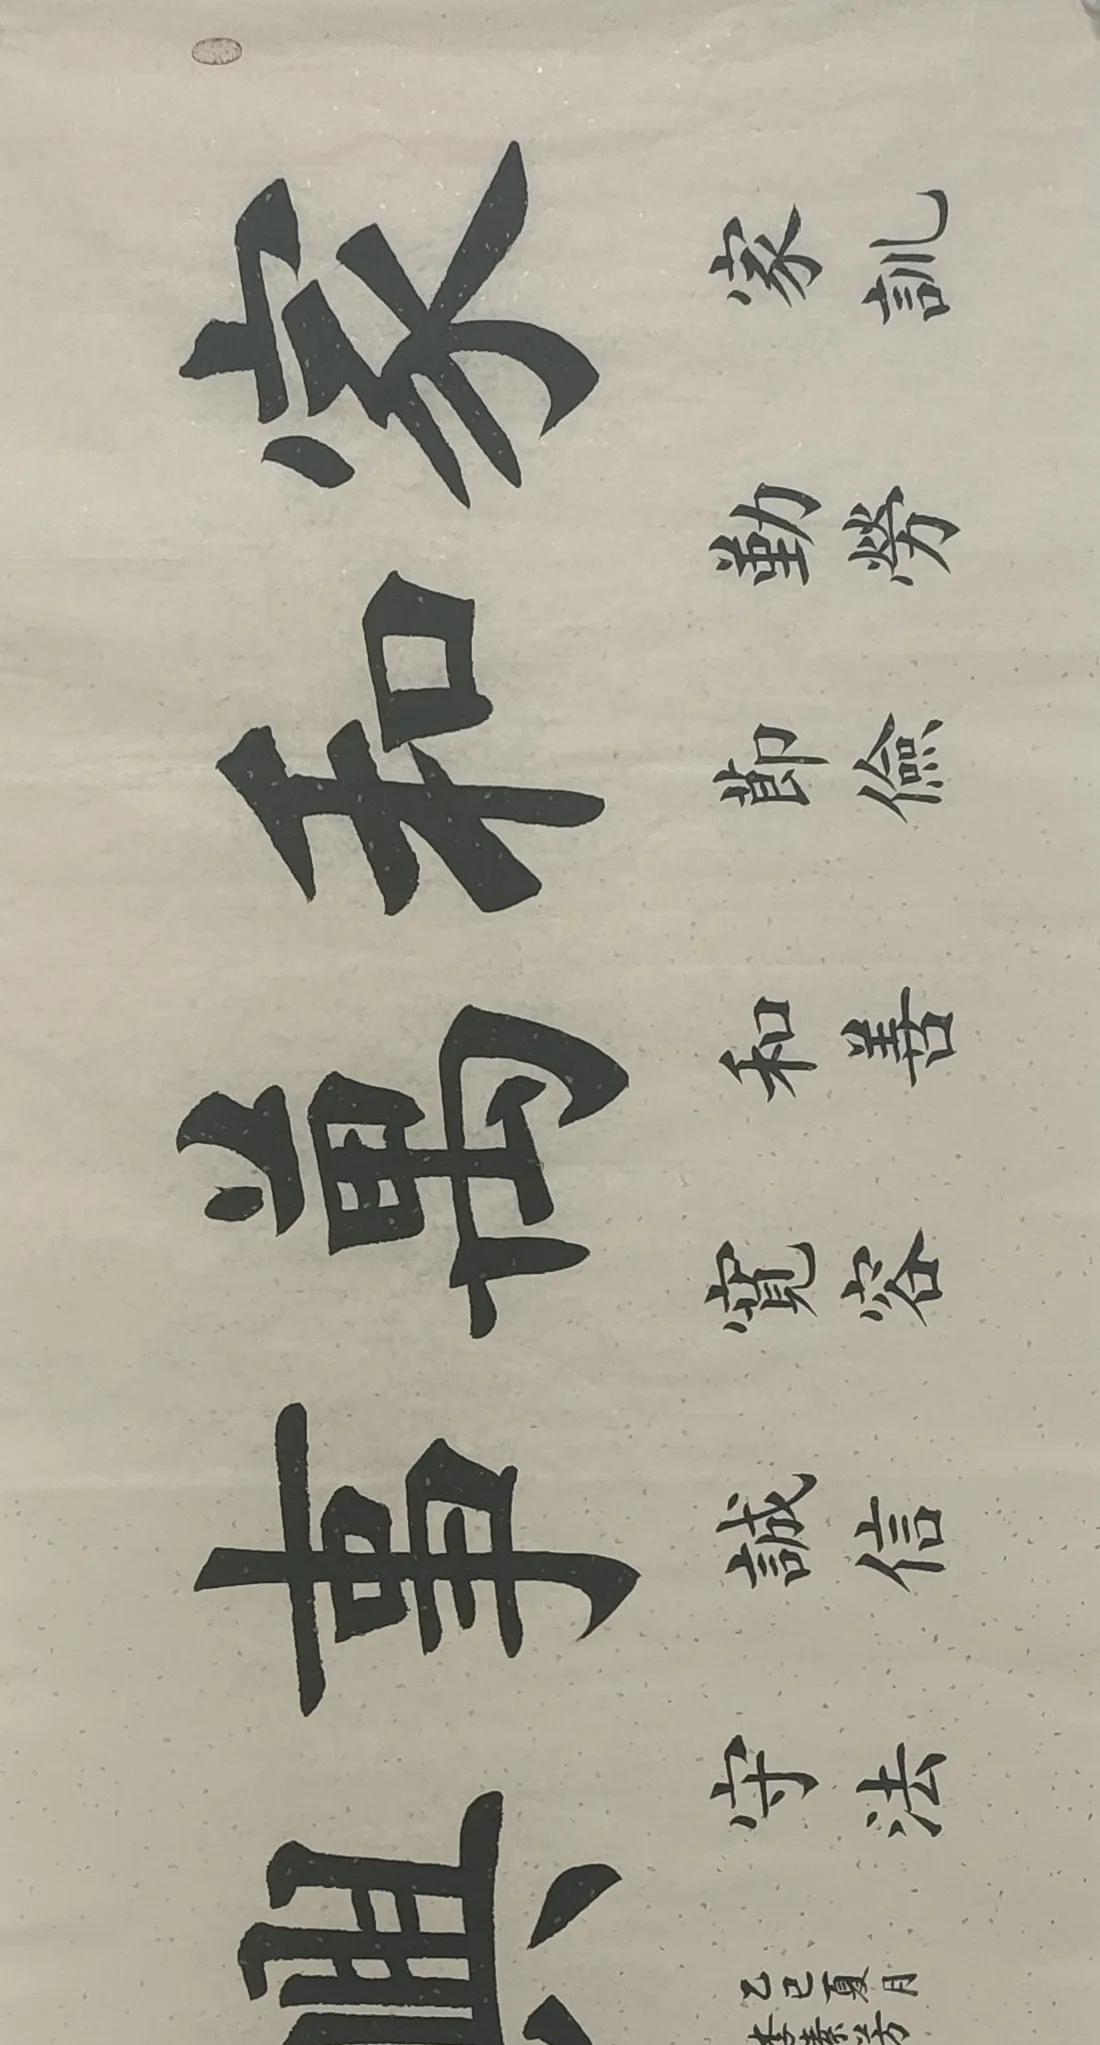 家和萬事興
家訓
勤勞
節儉
和善
寬容
誠信
守法
乙巳夏月